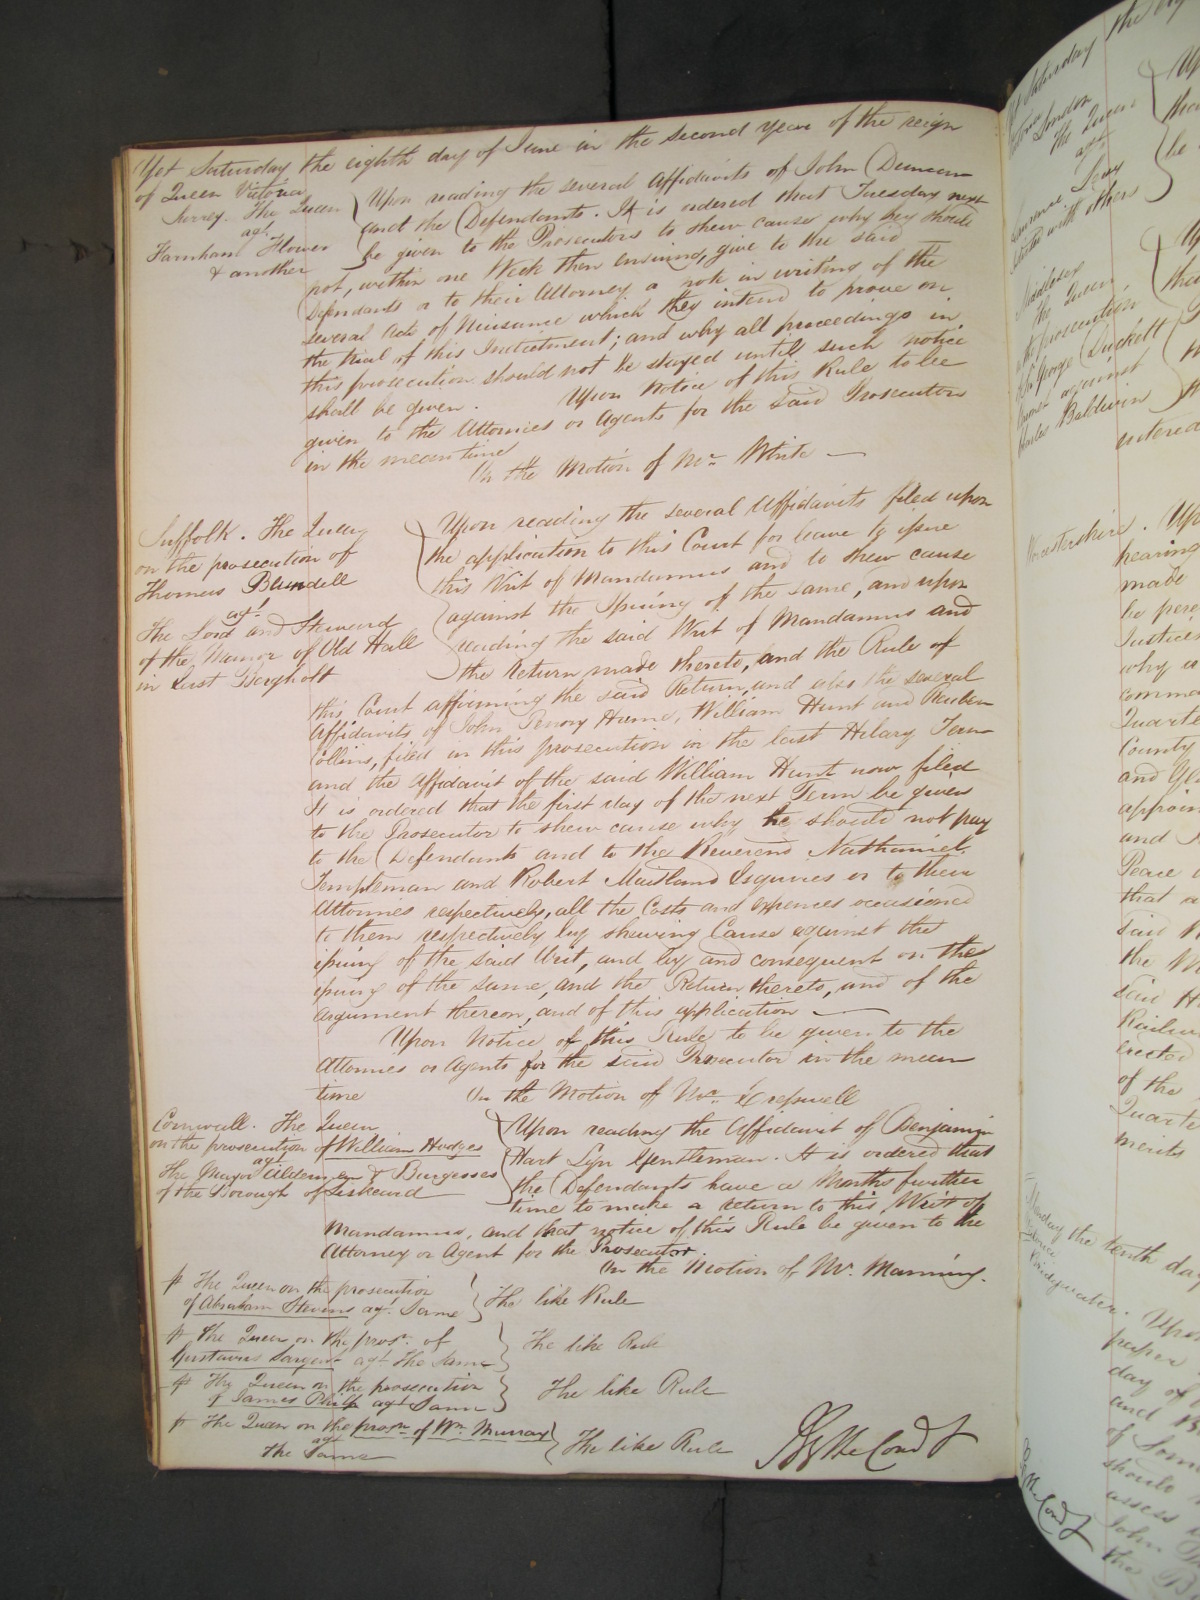 Yet Saturday the eighth day of June in the second year of the reign
of Queen Victoria
Surrey. The Queen
agt.
Farnham Flower
& another
Upon reading the several Affidavits of John Duncan
and the Defendants. It is ordered that Tuesday next
be given to the Prosecutors to shew cause why they should
not, within one Week then ensuing, give to the said
Defendants or to their Attorney a note in writing of the
several acts of Nuisance which they intend to prove on
the trial of this Indictment; and why all proceedings in
this prosecution should not be stayed until such notice
shall be given. Upon Notice of this Rule to be
given to the Attornies or Agents for the said Prosecutors
in the mean time
On the Motion of Mr. White
Suffolk. The Queen
on the prosecution of
Thomas Blundell
agt.
The Lord and Steward
of the Manor of Old Hall
in East Bergholt
Upon reading the several Affidavits filed upon
the application to this Court for leave to issue
this Writ of Mandamus and to shew cause
against the issuing of the same, and upon
reading the said Writ of Mandamus and
the Return made thereto, and the Rule of
this Court affirming the said Return, and also the several
Affidavits of John Hume, William Hunt and Reuben
Collins, filed in this prosecution in the last Hilary Term
and the Affidavit of the said William Hunt now filed
It is ordered that the first day of the next Term be given
to the Prosecutor to shew cause why he should not pay
to the Defendants and to the Reverend Nathaniel
Templeman and Robert Maitland Esquires or to their
Attornies respectively, all the Costs and expences occasioned
to them respectively by shewing Cause against the
issuing of the said Writ, and by and consequent on the
issuing of the same, and the Return thereto, and of the
argument thereon, and of this application
Upon Notice of this Rule to be given to the
Attornies or Agents for the said Prosecutor in the mean
time On the Motion of Mr. Cresswell
Cornwall. The Queen
on the prosecution of William Hodges
agt
The Mayor Aldermen & Burgesses
of the Borough of Liskeard
Upon reading the Affidavit of Benjamin
Hart Lyn Gentleman. It is ordered that
the Defendants have a Months further
time to make a return to this Writ of
Mandamus, and that notice of this Rule be given to the
Attorney or Agent for the Prosecutor.
On the Motion of Mr. Manning.
The Queen on the prosecution
of Abraham Stevens agt. Same
The like Rule
The Queen on the prosn. of
Gustavus Sargent agt the Same
The like Rule
The Queen on the prosecution
of James Philp agt Same
The like Rule
The Queen on the prosn. of Wm. Murray
agt
the Same
The like Rule
By the Court